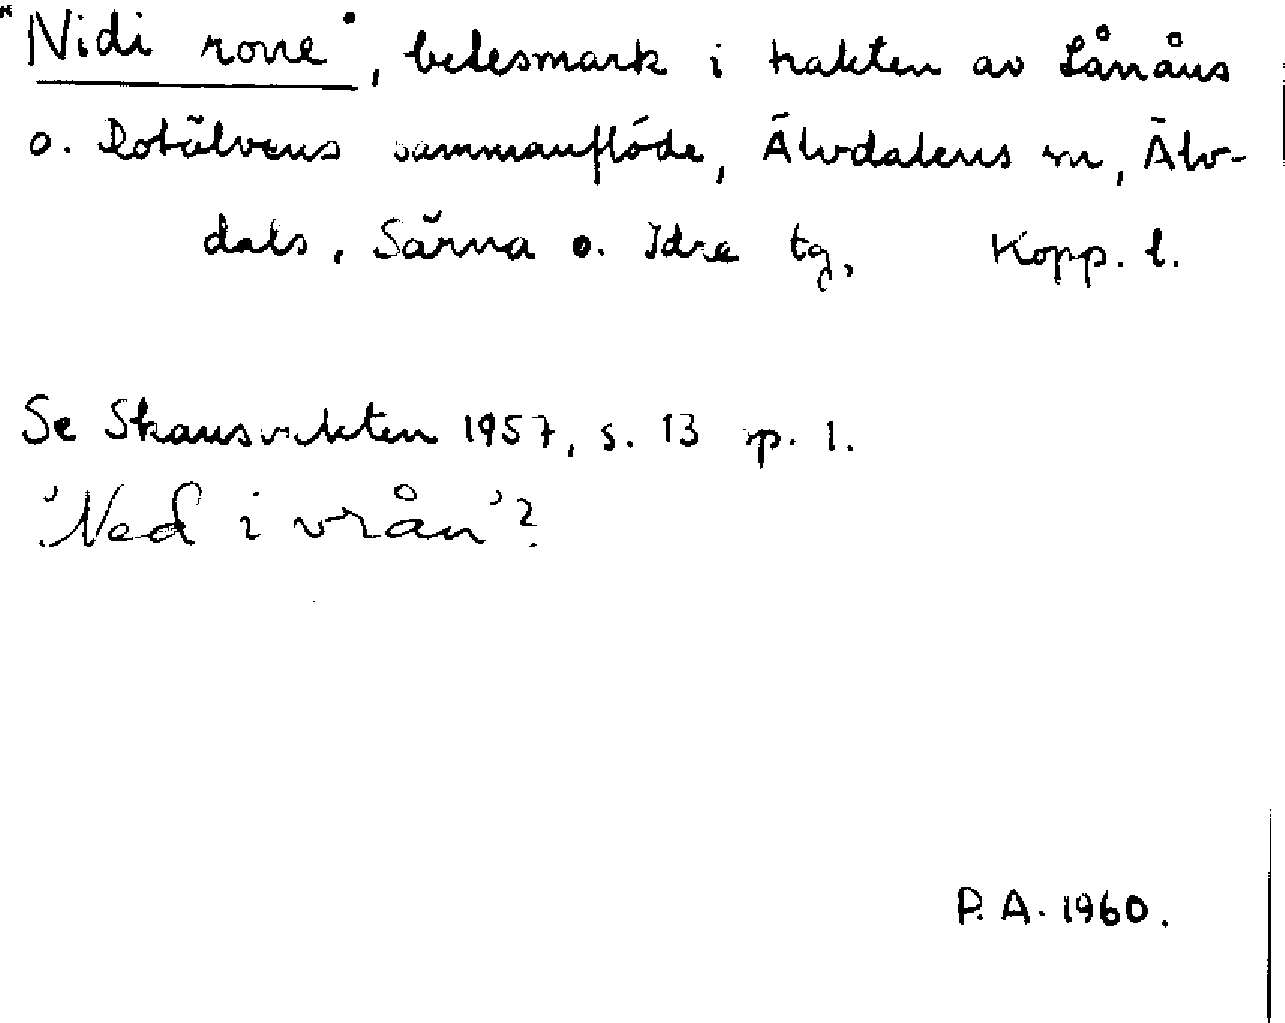 "Nidi rone", betesmark i trakten av Lånåns
o. Rotälvens sammanflöde, Älvdalens sn, Älv-
dals, Särna o. Idre tg, Kopp. l.
Se Skansvakten 1957, s. 13 sp. 1.
'Ned i vrån'?
P. A. 1960.